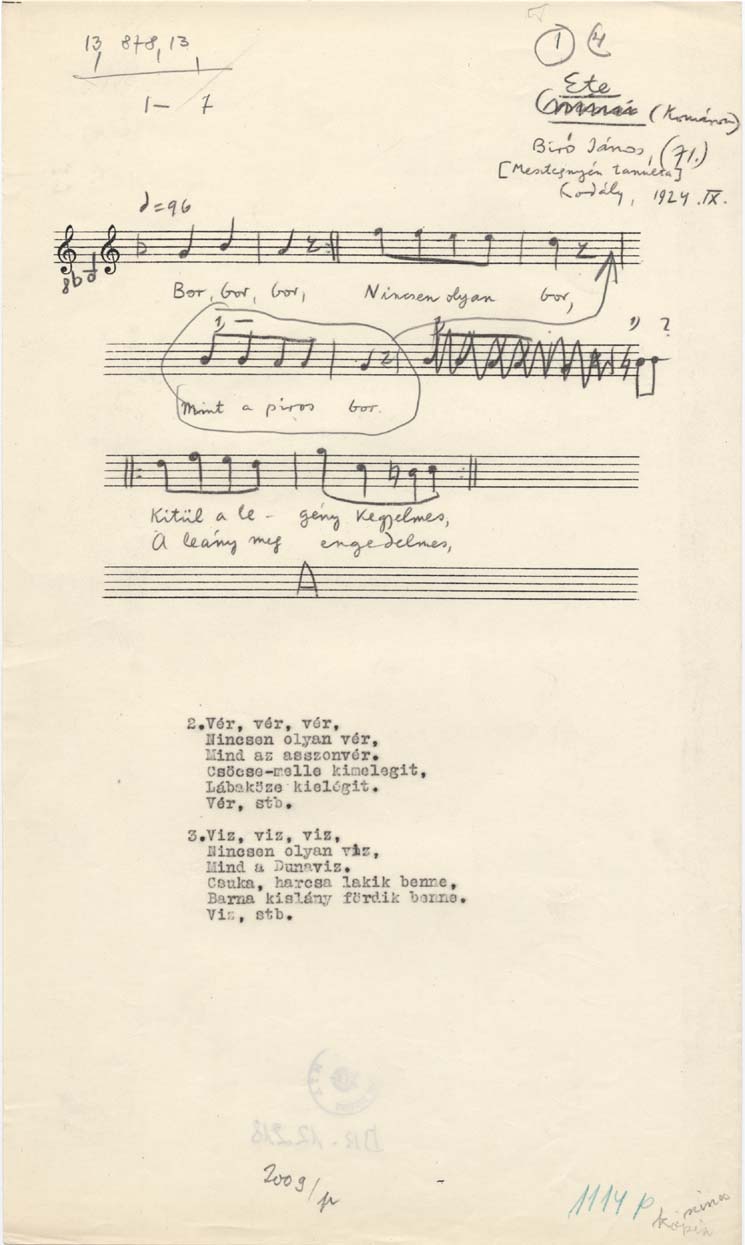 13 8+8, 13
1– 7
1 4
Ete
(Komárom)
Biró János, (71.)
[Mesterségén tanulta]
Kodály, 1924. IX.
♩=96
8
Bor, bor, bor, Nincsen olyan bor,
1) 1) ?
Mint a piros bor.
Kitül a le- gény kegyelmes,
A leány meg engedelmes,
A
2.Vér, vér, vér,
Nincsen olyan vér,
Mind az asszonvér.
Csöcse-melle kimelegit,
Lábaköze kielégit.
Vér, stb.
3.Viz, viz, viz,
Nincsen olyan viz,
Mind a Dunaviz.
Csuka, harcsa lakik benne,
Barna kislány fördik benne.
Viz, stb.
BR-12.218
2009/p
1114 p
nincs
kópia